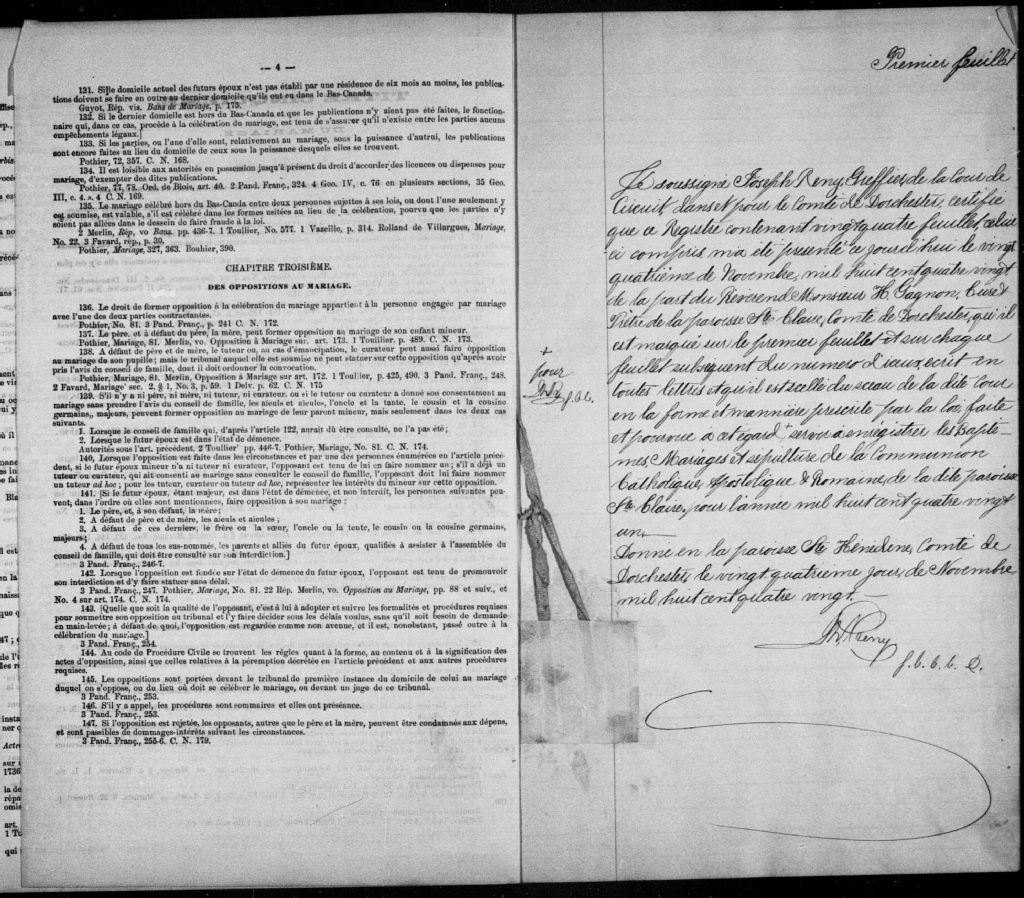 — 4 —
131. Si le domicile actuel des futurs époux n'est pas établi par une résidence de six mois au moins, les publica-
tions doivent se faire en outre au dernier domicile qu'ils ont eu dans le Bas-Canada.
Guyot, Rép. vis. Bans de Mariage, p. 175.
132. Si le dernier domicile est hors du Bas-Canada et que les publications n'y aient pas été faites, le fonction-
naire qui, dans ce cas, procède à la célébration du mariage, est tenu de s'assurer qu'il n'existe entre les parties aucuns
empêchements légaux.]
133. Si les parties, ou l'une d'elle sont, relativement au mariage, sous la puissance d'autrui, les publications
sont encore faites au lieu du domicile de ceux sous la puissance desquels elles se trouvent.
Pothier, 72, 357. C. N. 168.
134. Il est loisible aux autorités en possession jusqu'à présent du droit d'accorder des licences ou dispenses pour
mariage, d'exempter des dites publications.
Pothier, 77, 78. Ord. de Blois, art. 40. 2 Pand. Franç., 324. 4 Geo. IV, c. 76 en plusieurs sections, 35 Geo.
III, c. 4. s. 4 C. N. 169.
135. Le mariage célébré hors du Bas-Canada entre deux personnes sujettes à ses lois, ou dont l'une seulement y
est soumise, est valable, s'il est célébré dans les formes usitées au lieu de la célébration, pourvu que les parties n'y
soient pas allées dans le dessein de faire fraude à la loi.
2 Merlin, Rép, vo Bans. pp. 436-7. 1 Toullier, No. 577. 1 Vazeille, p. 314. Rolland de Villargues, Mariage,
No. 22. 3 Favard, rép., p. 30.
Pothier, Mariage, 327, 363. Bouhier, 390.
CHAPITRE TROISIÈME.
DES OPPOSITIONS AU MARIAGE.
136. Le droit de former opposition à la célébration du mariage appartient à la personne engagée par mariage
avec l'une des deux parties contractantes.
Pothier, No. 81. 3 Pand. Franç., p. 241 C. N. 172.
137. Le père, et à défaut du père, la mère, peut former opposition au mariage de son enfant mineur.
Pothier, Mariage, 81. Merlin, vo. Opposition à Mariage sur. art. 173. 1 Touillier. p. 489. C. N. 173.
138. A défaut de père et de mère, le tuteur ou, au cas d'émancipation, le curateur peut aussi faire opposition
au mariage de son pupille; mais le tribunal auquel elle est soumise ne peut statuer sur cette opposition qu'après avoir
pris l'avis du conseil de famille, dont il doit ordonner la convocation.
Pothier, Mariage, 81. Merlin, Opposition à Mariage sur art. 172. 1 Toullier, p. 425, 490. 3 Pand. Franç., 248.
2 Favard, Mariage sec. 2, § 1, No. 3, p. 59. 1 Delv. p. 62. C. N. 175
139. S'il n'y a ni père, ni mère, ni tuteur, ni curateur, ou si le tuteur ou curateur a donné son consentement au
mariage sans prendre l'avis du conseil de famille, les aïeuls et aïeules, l'oncle et la tante, le cousin et la cousine
germains, majeurs, peuvent former opposition au mariage de leur parent mineur, mais seulement dans les deux cas
suivants.
1. Lorsque le conseil de famille qui, d'après l'article 122, aurait dû être consulté, ne l'a pas été;
2. Lorsque le futur époux est dans l'état de démence.
Autorités sous l'art. précédent. 2 Toullier' pp. 446-7. Pothier, Mariage, No. 81. C. N. 174.
140, Lorsque l'opposition est faite dans les circonstances et par une des personnes énumérées en l'article précé-
dent, si le futur époux mineur n'a ni tuteur ni curateur, l'opposant est tenu de lui en faire nommer un; s'il a déjà un
tuteur ou curateur, qui ait consenti au mariage sans consulter le conseil de famille, l'opposant doit lui faire nommer
un tuteur ad hoc; pour les tuteur, curateur ou tuteur ad hoc, représenter les intérêts du mineur sur cette opposition.
141. [Si le futur époux, étant majeur, est dans l'état de démence, et non interdit, les personnes suivantes peu-
vent, dans l'ordre où elles sont mentionnées, faire opposition à son mariage :
1. Le père, et, à son défaut, la mère;
2. A défaut de père et de mère, les aïeuls et aïeules;
3. A défaut de ces derniers, le frère ou la sœur, l'oncle ou la tente, le cousin ou la cousine germains,
majeurs;
4. A défaut de tous les sus-nommés, les parents et alliés du futur époux, qualifiés à assister à l'assemblée du
conseil de famille, qui doit être consulté sur son interdiction.]
3 Pand. Franç., 246-7.
142. Lorsque l'opposition est fondée sur l'état de démence du futur époux, l'opposant est tenu de promouvoir
son interdiction et d'y faire statuer sans délai.
3 Pand. Franç., 247. Pothier, Mariage, No. 81. 22 Rép. Merlin, vo. Opposition au Mariage, pp. 88 et suiv., et
No. 4 sur art. 174. C. N. 174.
143. [Quelque que soit la qualité de l'opposant, c'est à lui à adopter et suivre les formalités et procédures requises
pour soumettre son opposition au tribunal et l'y faire décider sous les délais voulus, sans qu'il soit besoin de demande
en main-levée; à défaut de quoi, l'opposition est regardée comme non avenue, et il est, nonobstant, passé outre à la
célébration du mariage.]
3 Pand. Franç., 254.
144. Au code de Procédure Civile se trouvent les règles quant à la forme, au contenu et à la signification des
actes d'opposition, ainsi que celles relatives à la péremption décrétée en l'article précédent et aux autres procédures
requises.
145. Les oppositions sont portées devant le tribunal de première instance du domicile de celui au mariage
duquel on s'oppose, ou du lieu où doit se célébrer le mariage, ou devant un juge de ce tribunal.
3 Pand. Franç., 253.
146. S'il y a appel, les procédures sont sommaires et elles ont préséance.
3 Pand. Franç., 253.
147. Si l'opposition est rejetée, les opposants, autres que le père et la mère, peuvent être condamnés aux dépens,
et sont passibles de dommages-intérêts suivant les circonstances.
3 Pand. Franç., 255-6. C. N. 179.
Premier feuillet
Je soussigné Joseph Remy, Greffier, de la Cour de
Circuit, dans et pour le Comté de Dorchester, certifie
que ce Registre contenant vingt quatre feuillet, celui
ci compris m'a été présenté ce jourd'hui le vingt
quatrième de Novembre, mil huit cent quatre vingt
de la part du Révérend Monsieur H. Gagnon, Curé &
Prêtre de la paroisse Ste Claire, Comté de Dorchester, qu'il
est marqué sur le premier feuillet et sur chaque
feuillet subséquent du numéro d'iceux, ecrit en
toutes lettres et qu'il est scellé du sceau de la dite Cour
en la forme et mannière prescrite par la loi, faite
et pourvue à cet égard + servir à enregistrer les Baptê-
mes Mariages et sépulture de la Communion
Catholique, Apostolique & Romaine, de la dite paroisse
Ste Claire, pour l'année mil huit cent quatre vingt
un.—
Donné en la paroisse Ste Hénédine, Comté de
Dorchester, le vingt quatrième jour, de Novembre
mil huit cent quatre vingt.—
+
pour